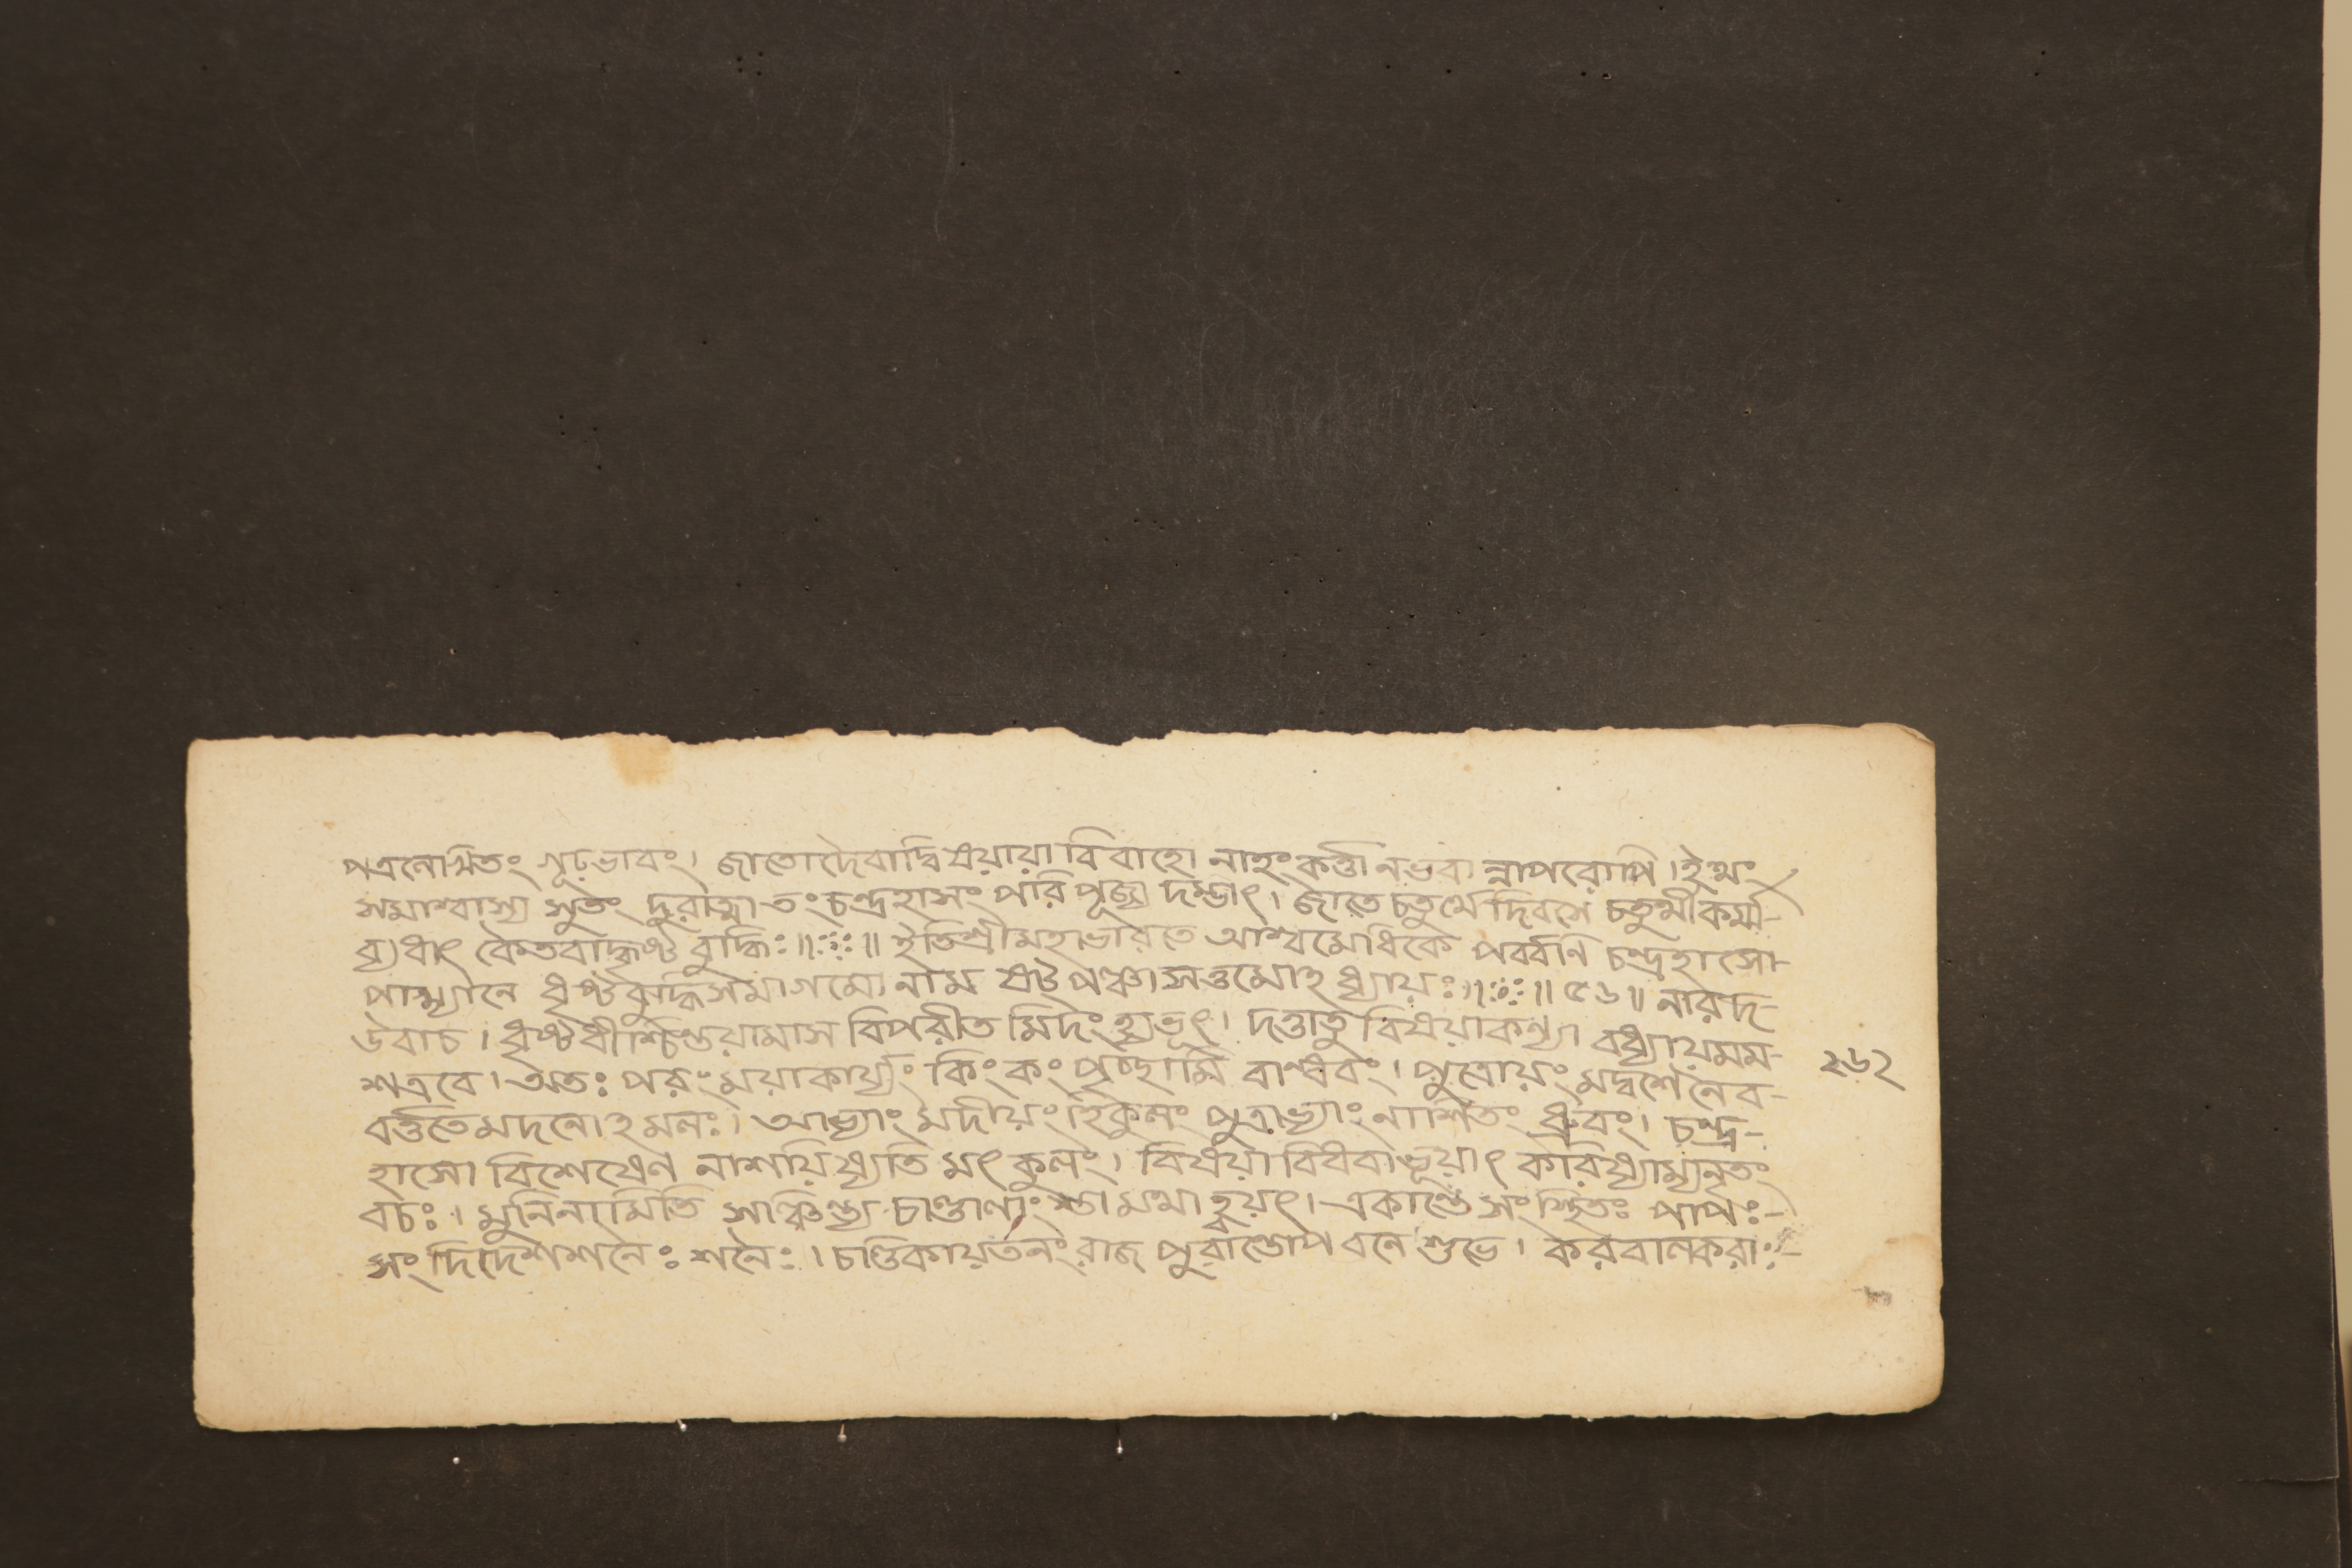 পত্রনোখিতং গূঢ়ভাবং। জাতোদৈবাদ্বিষয়ায়া বিবাহো নাহং কর্ত্তা নভবা ন্নাপরোপি। ইত্থং
সমাশ্বাস্য সুতং দুরাত্মা তং চন্দ্রহাসং পরি পূজ্য দম্ভাৎ। জাতে চতুর্থে দিবসে চতুর্থী কর্ম্ম-
ব্যধাৎ কৈতবাদ্ধৃষ্ট বুদ্ধিঃ॥ঃ॥ ইতিশ্রীমহাভারতে আশ্বমেধিকে পর্ব্বণি চন্দ্রহাসো-
পাখ্যানে ধৃষ্টবুদ্ধিসমাগমো নাম ষট্পঞ্চাসত্তমোঽ ধ্যায়ঃ॥ঃ॥ ৫৬॥ নারদ-
উবাচ। ধৃষ্টধীশ্চিন্তয়ামাস বিপরীত মিদং হ্যভূৎ। দত্তাতু বিষয়াকন্যা বধ্যায়মম-
শত্রবে। অতঃ পরং ময়াকার্য্যং কিং কং পৃচ্ছামি বান্ধবং। পুত্রোয়ং মদ্বশে নৈব-
বর্ত্ততেমদনোঽমলঃ। আভ্যাং মদীয়ং হিকুলং পুত্রাভ্যাং নাশিতং ধ্রুবং। চন্দ্র-
হাসো বিশেষেণ নাশয়িষ্যতি মৎ কুলং। বিষয়া বিধবাভূয়াৎ করিষ্যাম্যনৃতং
বচঃ। মুনিনামিতি সঞ্চিন্ত্য চাণ্ডালাং স্তা মথাহ্বয়ৎ। একান্তে সংস্থিতঃ পাপঃ-
সং দিদেশশনৈঃ শনৈঃ। চণ্ডিকায়তনং রাজ পুরান্তোপ বনে শুভে। করবালকরাঃ-
২৬২